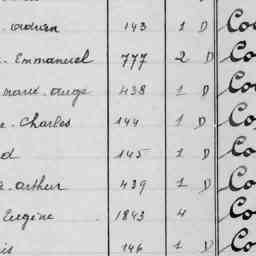 Adrien 143 1 D Co
Emmanuel 777 2 D Co
Marie-Ange 438 1 D Co
e-Charles 144 1 D Co
d 145 1 D Co
Arthur 439 1 D Co
Eugène 1843 4 Co
is 146 1 D Co